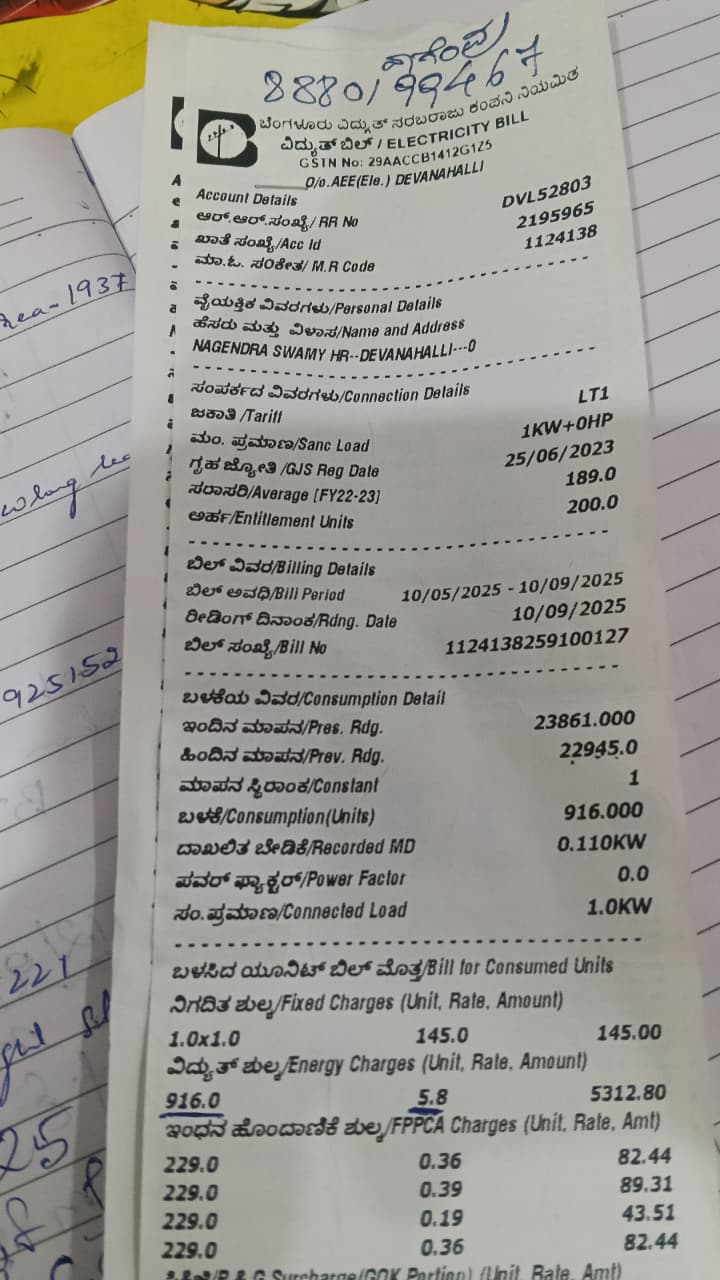 ನಾಗೇಂದ್ರ
8880199467
ಬೆಂಗಳೂರು ವಿದ್ಯುತ್ ಸರಬರಾಜು ಕಂಪನಿ ನಿಯಮಿತ
ವಿದ್ಯುತ್ ಬಿಲ್ / ELECTRICITY BILL
GSTN No: 29AACCB1412G1Z5
O/o.AEE(Ele.) DEVANAHALLI
Account Details
ಆರ್.ಆರ್.ಸಂಖ್ಯೆ/ RR No DVL52803
ಖಾತೆ ಸಂಖ್ಯೆ/Acc Id 2195965
ಮಾ.ಓ. ಸಂಕೇತ/ M.R Code 1124138
ವೈಯಕ್ತಿಕ ವಿವರಗಳು/Personal Details
ಹೆಸರು ಮತ್ತು ವಿಳಾಸ/Name and Address
NAGENDRA SWAMY HR--DEVANAHALLI---0
ಸಂಪರ್ಕದ ವಿವರಗಳು/Connection Details
ಜಕಾತಿ /Tariff LT1
ಮಂ. ಪ್ರಮಾಣ/Sanc Load 1KW+0HP
ಗೃಹ ಜ್ಯೋತಿ /GJS Reg Date 25/06/2023
ಸರಾಸರಿ/Average [FY22-23] 189.0
ಅರ್ಹ/Entitlement Units 200.0
ಬಿಲ್ ವಿವರ/Billing Details
ಬಿಲ್ ಅವಧಿ/Bill Period 10/05/2025 - 10/09/2025
ರೀಡಿಂಗ್ ದಿನಾಂಕ/Rdng. Date 10/09/2025
ಬಿಲ್ ಸಂಖ್ಯೆ/Bill No 1124138259100127
ಬಳಕೆಯ ವಿವರ/Consumption Detail
ಇಂದಿನ ಮಾಪನ/Pres. Rdg. 23861.000
ಹಿಂದಿನ ಮಾಪನ/Prev. Rdg. 22945.0
ಮಾಪನ ಸ್ಥಿರಾಂಕ/Constant 1
ಬಳಕೆ/Consumption(Units) 916.000
ದಾಖಲಿತ ಬೇಡಿಕೆ/Recorded MD 0.110KW
ಪವರ್ ಫ್ಯಾಕ್ಟರ್/Power Factor 0.0
ಸಂ.ಪ್ರಮಾಣ/Connected Load 1.0KW
ಬಳಸಿದ ಯೂನಿಟ್ ಬಿಲ್ ಮೊತ್ತ/Bill for Consumed Units
ನಿಗದಿತ ಶುಲ್ಕ/Fixed Charges (Unit, Rate, Amount)
1.0x1.0 145.0 145.00
ವಿದ್ಯುತ್ ಶುಲ್ಕ/Energy Charges (Unit, Rate, Amount)
916.0 5.8 5312.80
ಇಂಧನ ಹೊಂದಾಣಿಕೆ ಶುಲ್ಕ/FPPCA Charges (Unit, Rate, Amt)
229.0 0.36 82.44
229.0 0.39 89.31
229.0 0.19 43.51
229.0 0.36 82.44
P & G Surcharge(GOK Portion) (Unit, Rate, Amt)
1937
925152
221
25